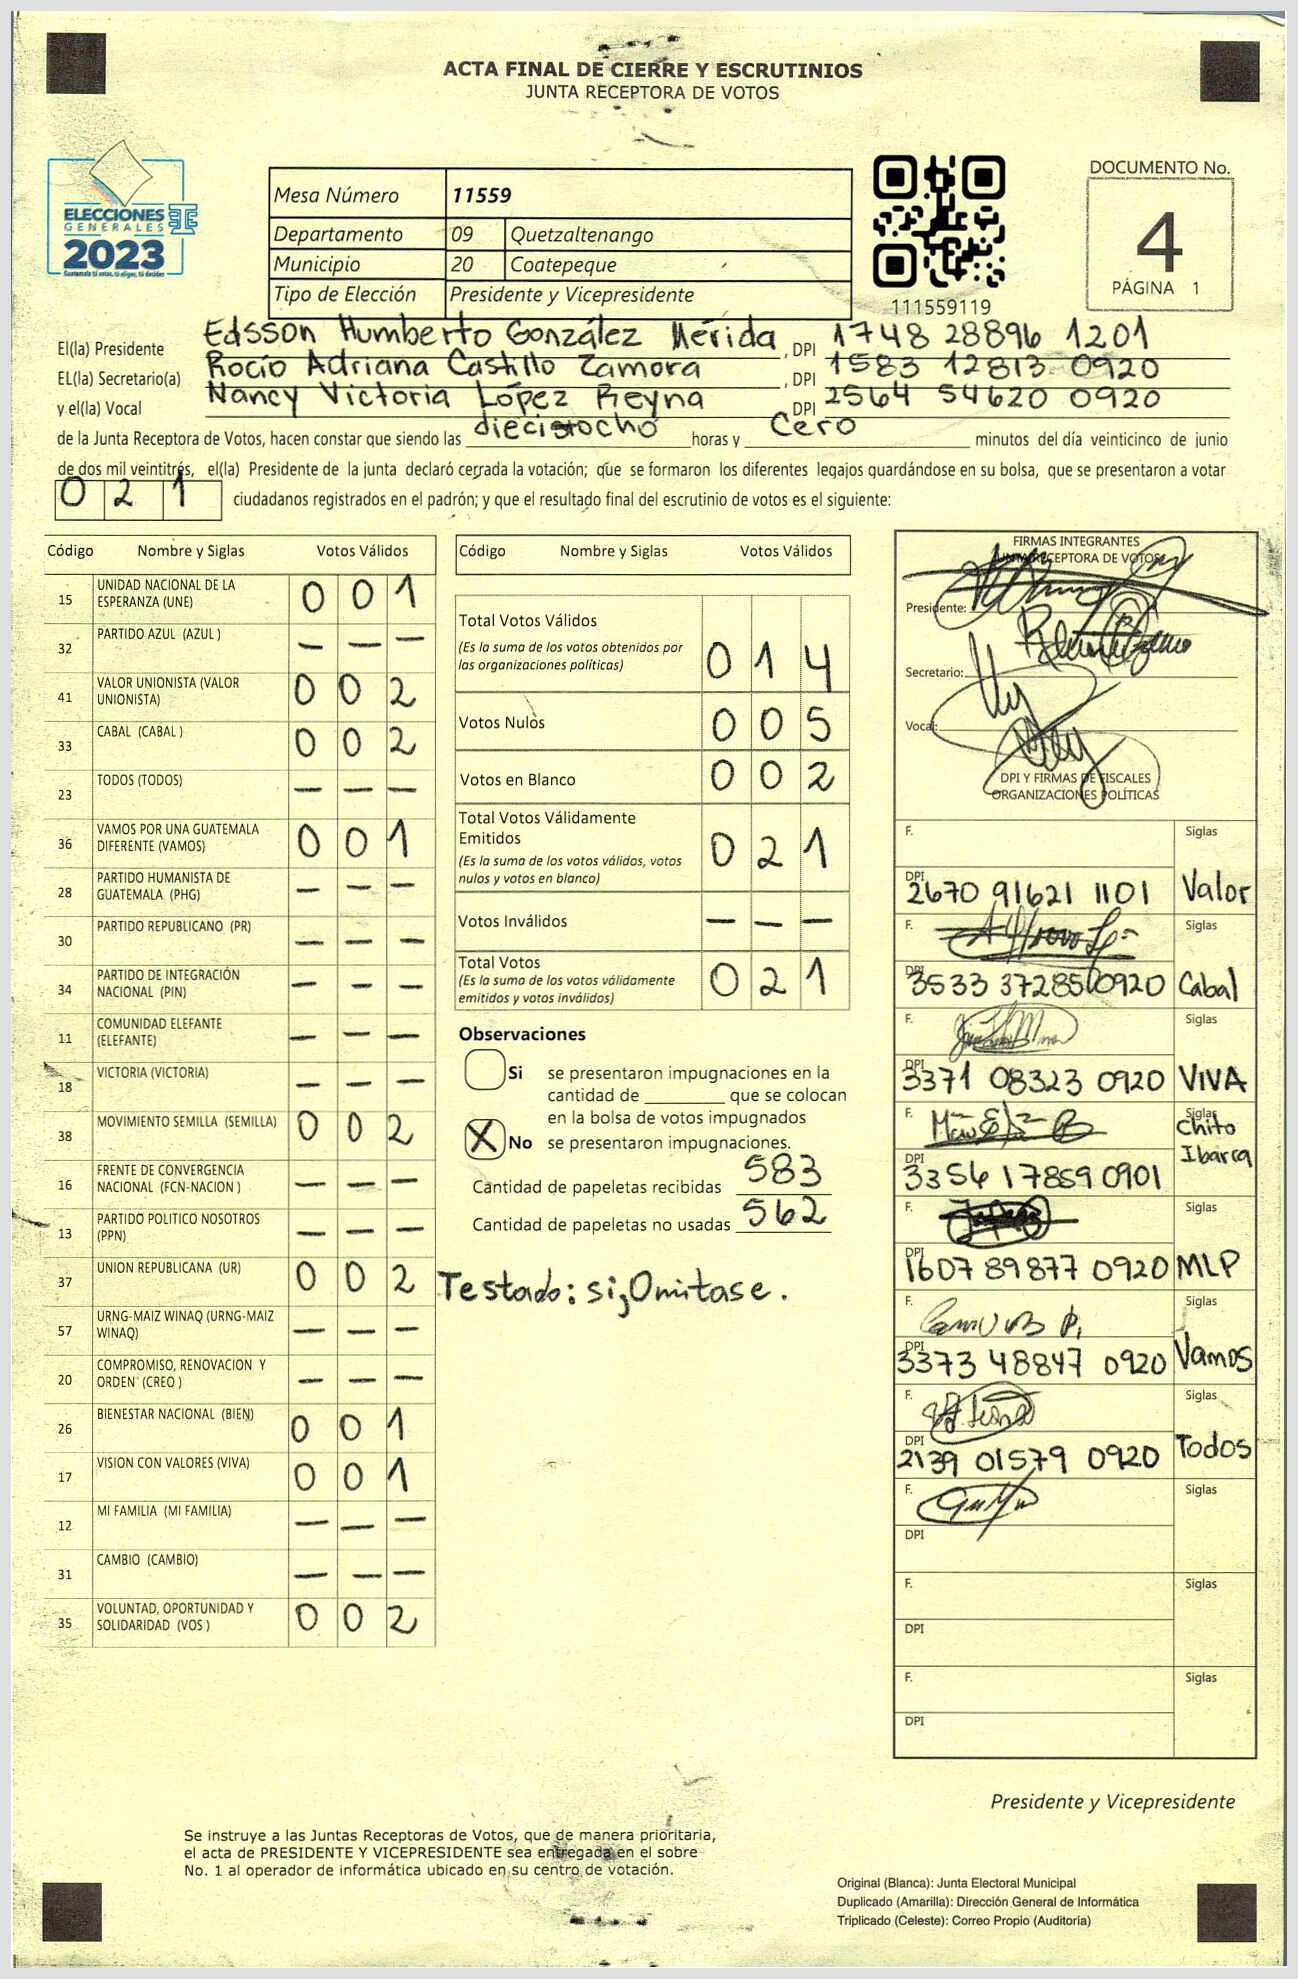 ACTA FINAL DE CIERRE Y ESCRUTINIOS
JUNTA RECEPTORA DE VOTOS
ELECCIONES
GENERALES
2023
Guatemala tú votas, tú eliges, tú decides
Mesa Número 11559
Departamento 09 Quetzaltenango
Municipio 20 Coatepeque
Tipo de Elección Presidente y Vicepresidente
111559119
DOCUMENTO No.
4
PÁGINA 1
El(la) Presidente Edsson Humberto González Mérida, DPI 1748 28896 1201
EL(la) Secretario(a) Rocío Adriana Castillo Zamora, DPI 1583 12813 0920
y el(la) Vocal Nancy Victoria López Reyna DPI 2564 54620 0920
de la Junta Receptora de Votos, hacen constar que siendo las dieciocho horas y Cero minutos del día veinticinco de junio
de dos mil veintitrés, el(la) Presidente de la junta declaró cerrada la votación; que se formaron los diferentes legajos guardándose en su bolsa, que se presentaron a votar
0 2 1 ciudadanos registrados en el padrón; y que el resultado final del escrutinio de votos es el siguiente:
Código Nombre y Siglas Votos Válidos
15 UNIDAD NACIONAL DE LA ESPERANZA (UNE) 0 0 1
32 PARTIDO AZUL (AZUL ) — — —
41 VALOR UNIONISTA (VALOR UNIONISTA) 0 0 2
33 CABAL (CABAL ) 0 0 2
23 TODOS (TODOS) — — —
36 VAMOS POR UNA GUATEMALA DIFERENTE (VAMOS) 0 0 1
28 PARTIDO HUMANISTA DE GUATEMALA (PHG) — — —
30 PARTIDO REPUBLICANO (PR) — — —
34 PARTIDO DE INTEGRACIÓN NACIONAL (PIN) — — —
11 COMUNIDAD ELEFANTE (ELEFANTE) — — —
18 VICTORIA (VICTORIA) — — —
38 MOVIMIENTO SEMILLA (SEMILLA) 0 0 2
16 FRENTE DE CONVERGENCIA NACIONAL (FCN-NACION ) — — —
13 PARTIDO POLITICO NOSOTROS (PPN) — — —
37 UNION REPUBLICANA (UR) 0 0 2
57 URNG-MAIZ WINAQ (URNG-MAIZ WINAQ) — — —
20 COMPROMISO, RENOVACION Y ORDEN (CREO ) — — —
26 BIENESTAR NACIONAL (BIEN) 0 0 1
17 VISION CON VALORES (VIVA) 0 0 1
12 MI FAMILIA (MI FAMILIA) — — —
31 CAMBIO (CAMBIO) — — —
35 VOLUNTAD, OPORTUNIDAD Y SOLIDARIDAD (VOS ) 0 0 2
Código Nombre y Siglas Votos Válidos
Total Votos Válidos 0 1 4
(Es la suma de los votos obtenidos por
las organizaciones políticas)
Votos Nulos 0 0 5
Votos en Blanco 0 0 2
Total Votos Válidamente
Emitidos 0 2 1
(Es la suma de los votos válidos, votos
nulos y votos en blanco)
Votos Inválidos — — —
Total Votos 0 2 1
(Es la suma de los votos válidamente
emitidos y votos inválidos)
Observaciones
Si se presentaron impugnaciones en la
cantidad de ________ que se colocan
en la bolsa de votos impugnados
X No se presentaron impugnaciones.
Cantidad de papeletas recibidas 583
Cantidad de papeletas no usadas 562
Testado: si, Omitase.
FIRMAS INTEGRANTES
JUNTA RECEPTORA DE VOTOS
Presidente:
Secretario:
Vocal:
DPI Y FIRMAS DE FISCALES
ORGANIZACIONES POLÍTICAS
F. Siglas
DPI 2670 91621 1101 Valor
F. Siglas
DPI 3533 37285 0920 Cabal
F. Siglas
DPI 3371 08323 0920 VIVA
F. Siglas Chito Ibarra
DPI 3356 17859 0901
F. Siglas
DPI 1607 89877 0920 MLP
F. Siglas
DPI 3373 48847 0920 Vamos
F. Siglas
DPI 2139 01579 0920 Todos
F. Siglas
DPI
F. Siglas
DPI
F. Siglas
DPI
Presidente y Vicepresidente
Se instruye a las Juntas Receptoras de Votos, que de manera prioritaria,
el acta de PRESIDENTE Y VICEPRESIDENTE sea entregada en el sobre
No. 1 al operador de informática ubicado en su centro de votación.
Original (Blanca): Junta Electoral Municipal
Duplicado (Amarilla): Dirección General de Informática
Triplicado (Celeste): Correo Propio (Auditoría)